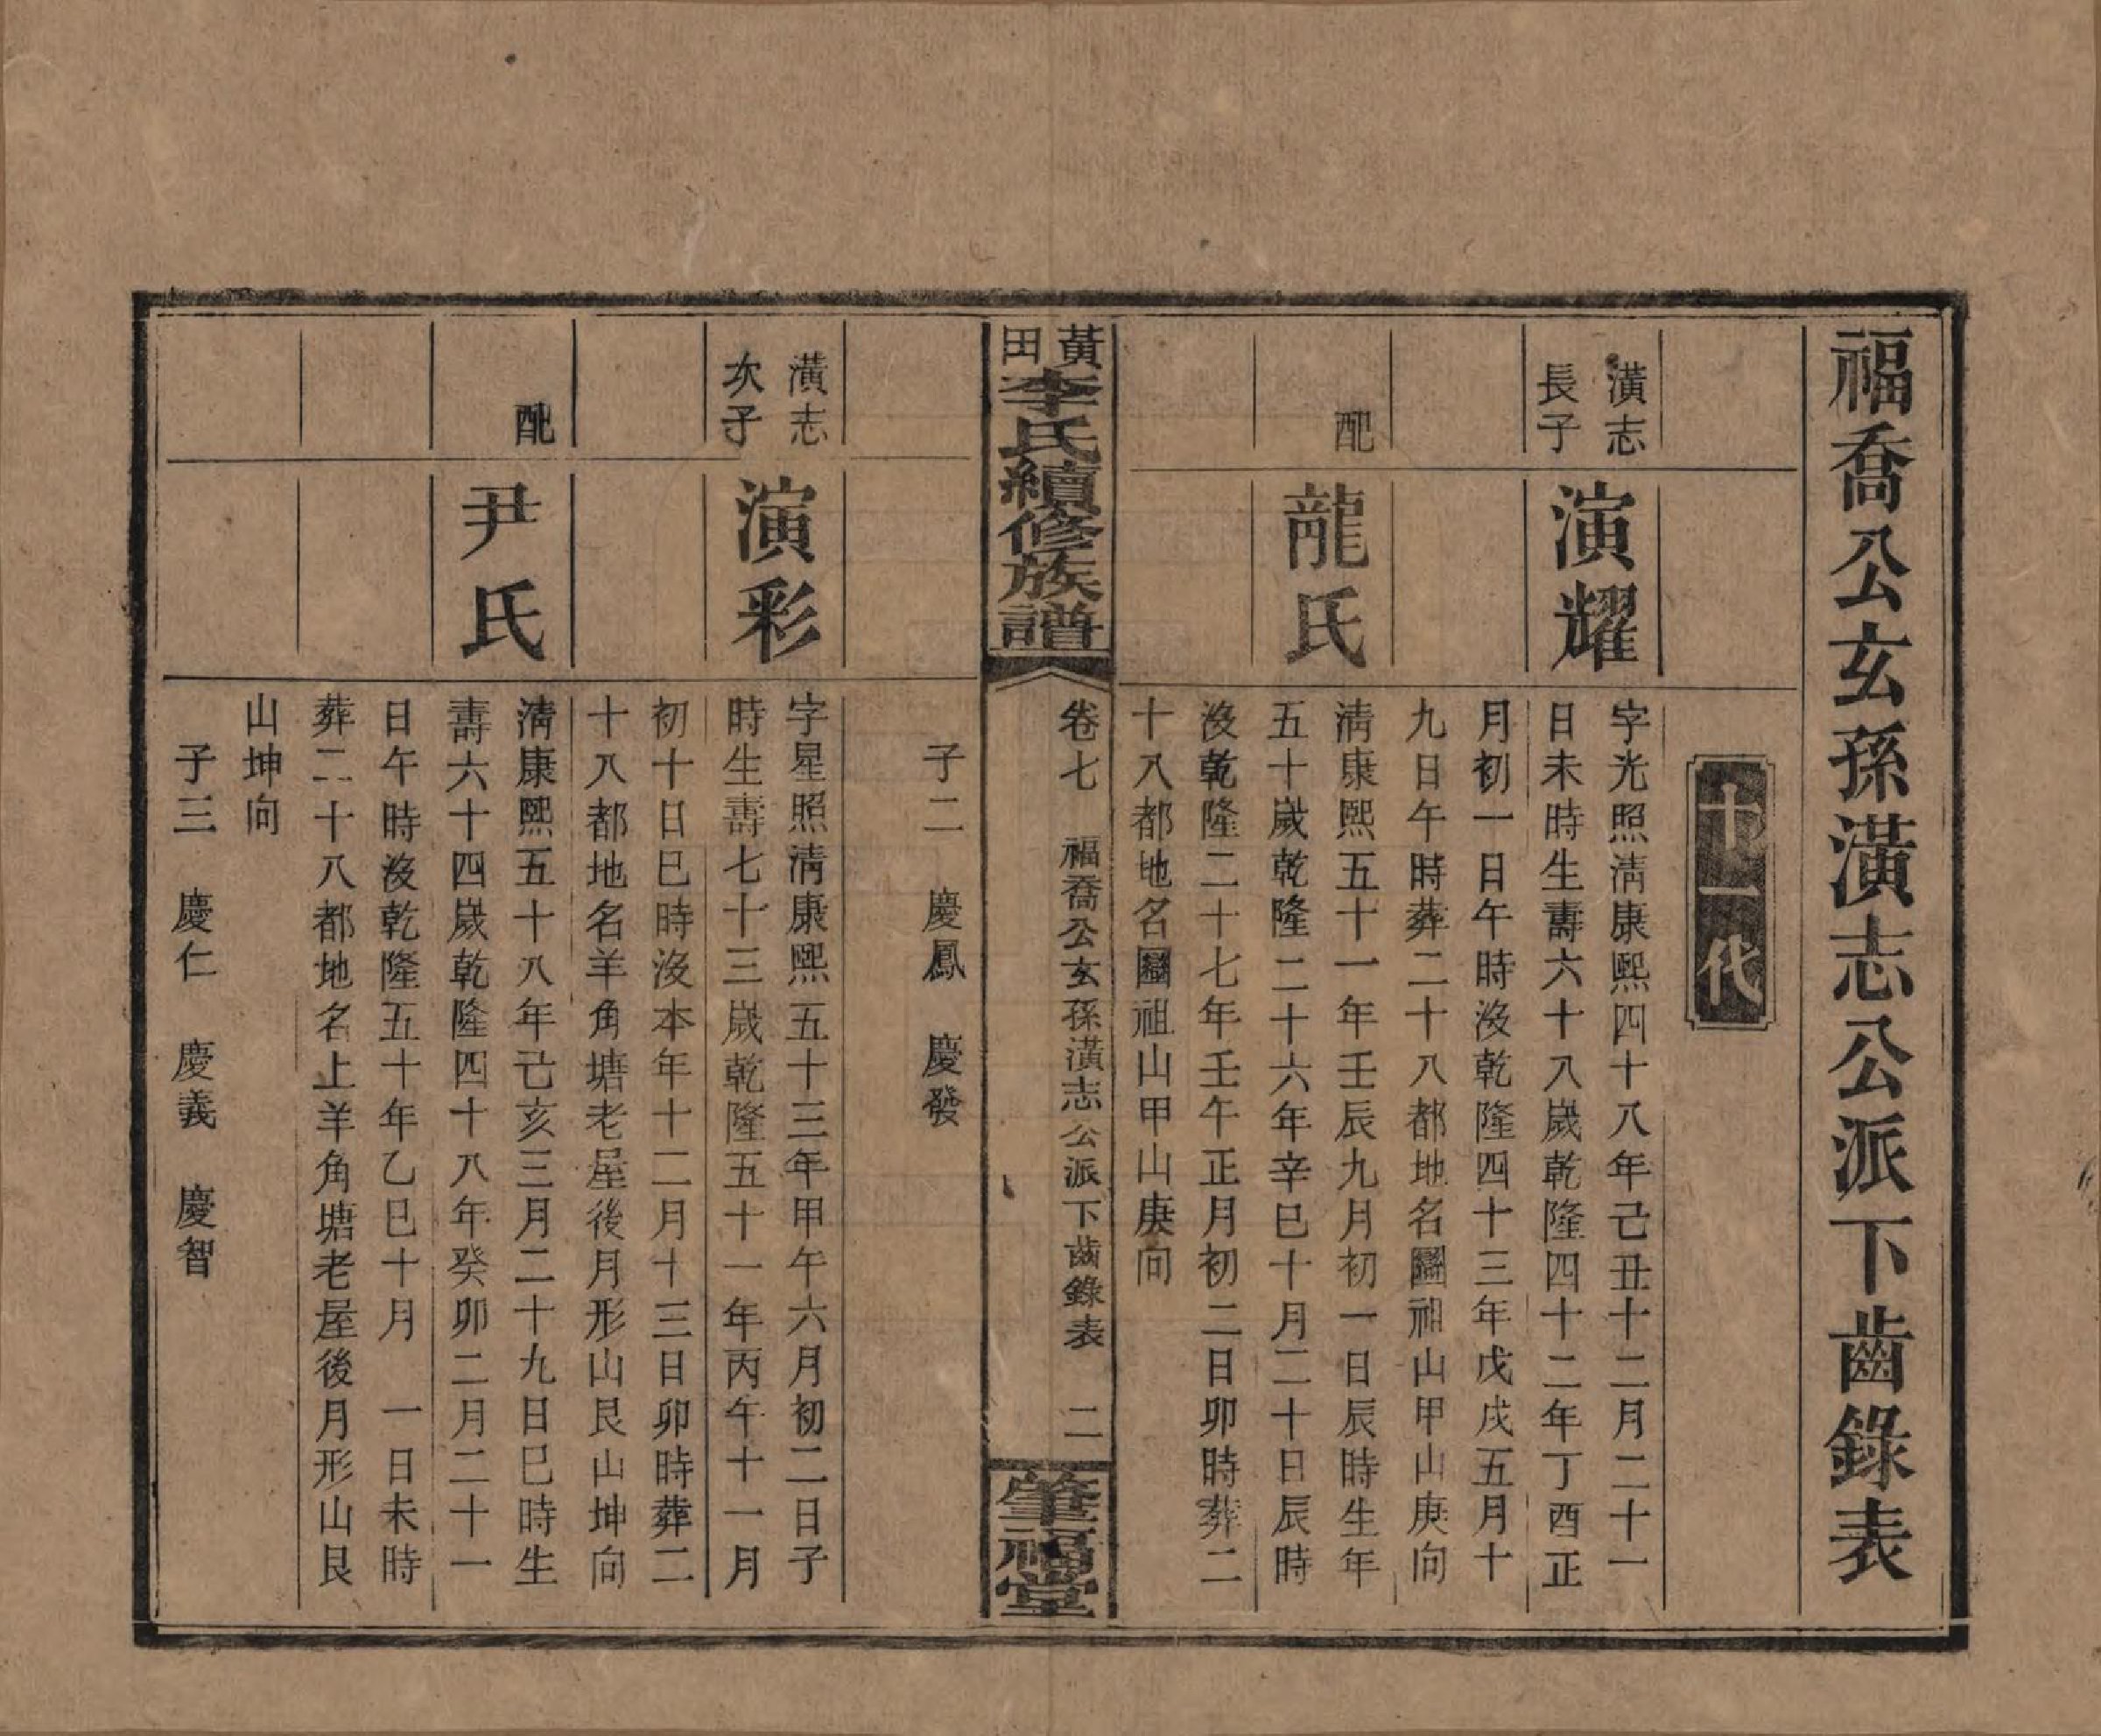 福喬公玄孫潢志公派下齒錄表
十一代
潢志
長子
演耀
字光照清康熙四十八年己丑十二月二十一
日未時生壽六十八歲乾隆四十二年丁酉正
月初一日午時沒乾隆四十三年戊戌五月十
九日午時葬二十八都地名圞祖山甲山庚向
配
龍氏
清康熙五十一年壬辰九月初一日辰時生年
五十歲乾隆二十六年辛巳十月二十日辰時
沒乾隆二十七年壬午正月初二日卯時葬二
十八都地名圞祖山甲山庚向
黃田李氏續修族譜
卷七 福喬公玄孫潢志公派下齒錄表 二
肇福堂
子二 慶鳳 慶發
潢志
次子
演彩
字星照清康熙五十三年甲午六月初二日子
時生壽七十三歲乾隆五十一年丙午十一月
初十日巳時沒本年十二月十三日卯時葬二
十八都地名羊角塘老屋後月形山艮山坤向
配
尹氏
清康熙五十八年己亥三月二十九日巳時生
壽六十四歲乾隆四十八年癸卯二月二十一
日午時沒乾隆五十年乙巳十月 一日未時
葬二十八都地名上羊角塘老屋後月形山艮
山坤向
子三 慶仁 慶義 慶智